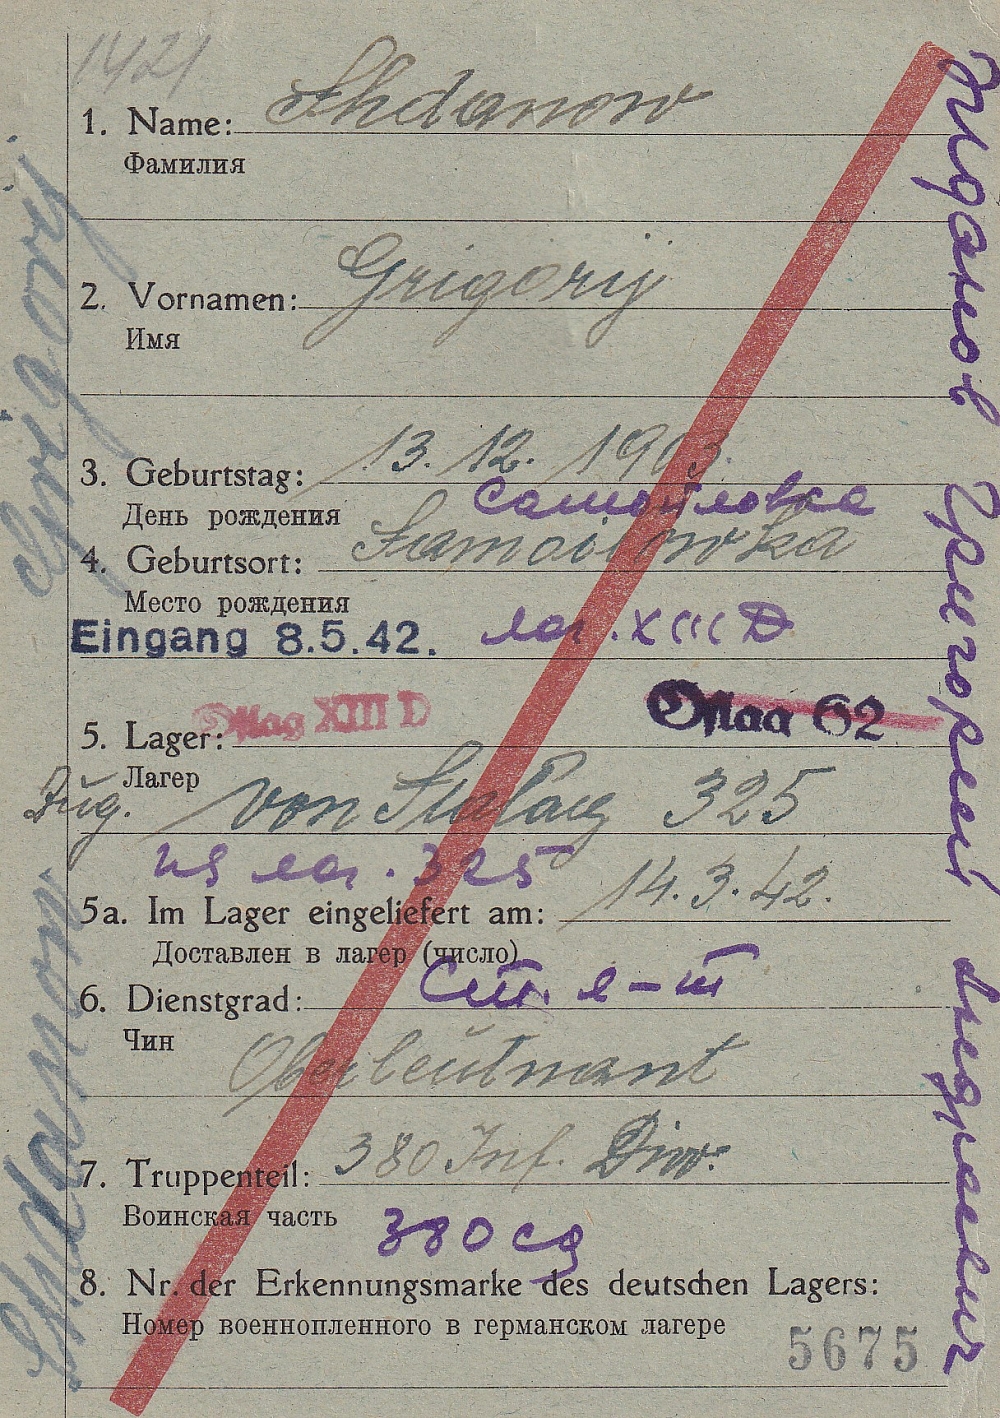 1421
1. Name: Shdanow
Фамилия
2. Vornamen: Grigorij
Имя
3. Geburtstag: 13. 12. 1903.
День рождения
Самойловка
4. Geburtsort: Samoilowka
Место рождения
Eingang 8.5.42.
лаг. XIII D
5. Lager: Oflag XIII D
Oflag 62
Лагер
Zug. von Stalag 325
из лаг. 325
5a. Im Lager eingeliefert am: 14. 3. 42.
Доставлен в лагер (число)
6. Dienstgrad: Ст. л-т
Чин
Oberleutnant
7. Truppenteil: 380 Inf. Div.
Воинская часть
380 сд
8. Nr. der Erkennungsmarke des deutschen Lagers:
Номер военнопленного в германском лагере
5675
Shdanow Grigorij
Жданов Григорий Андреевич